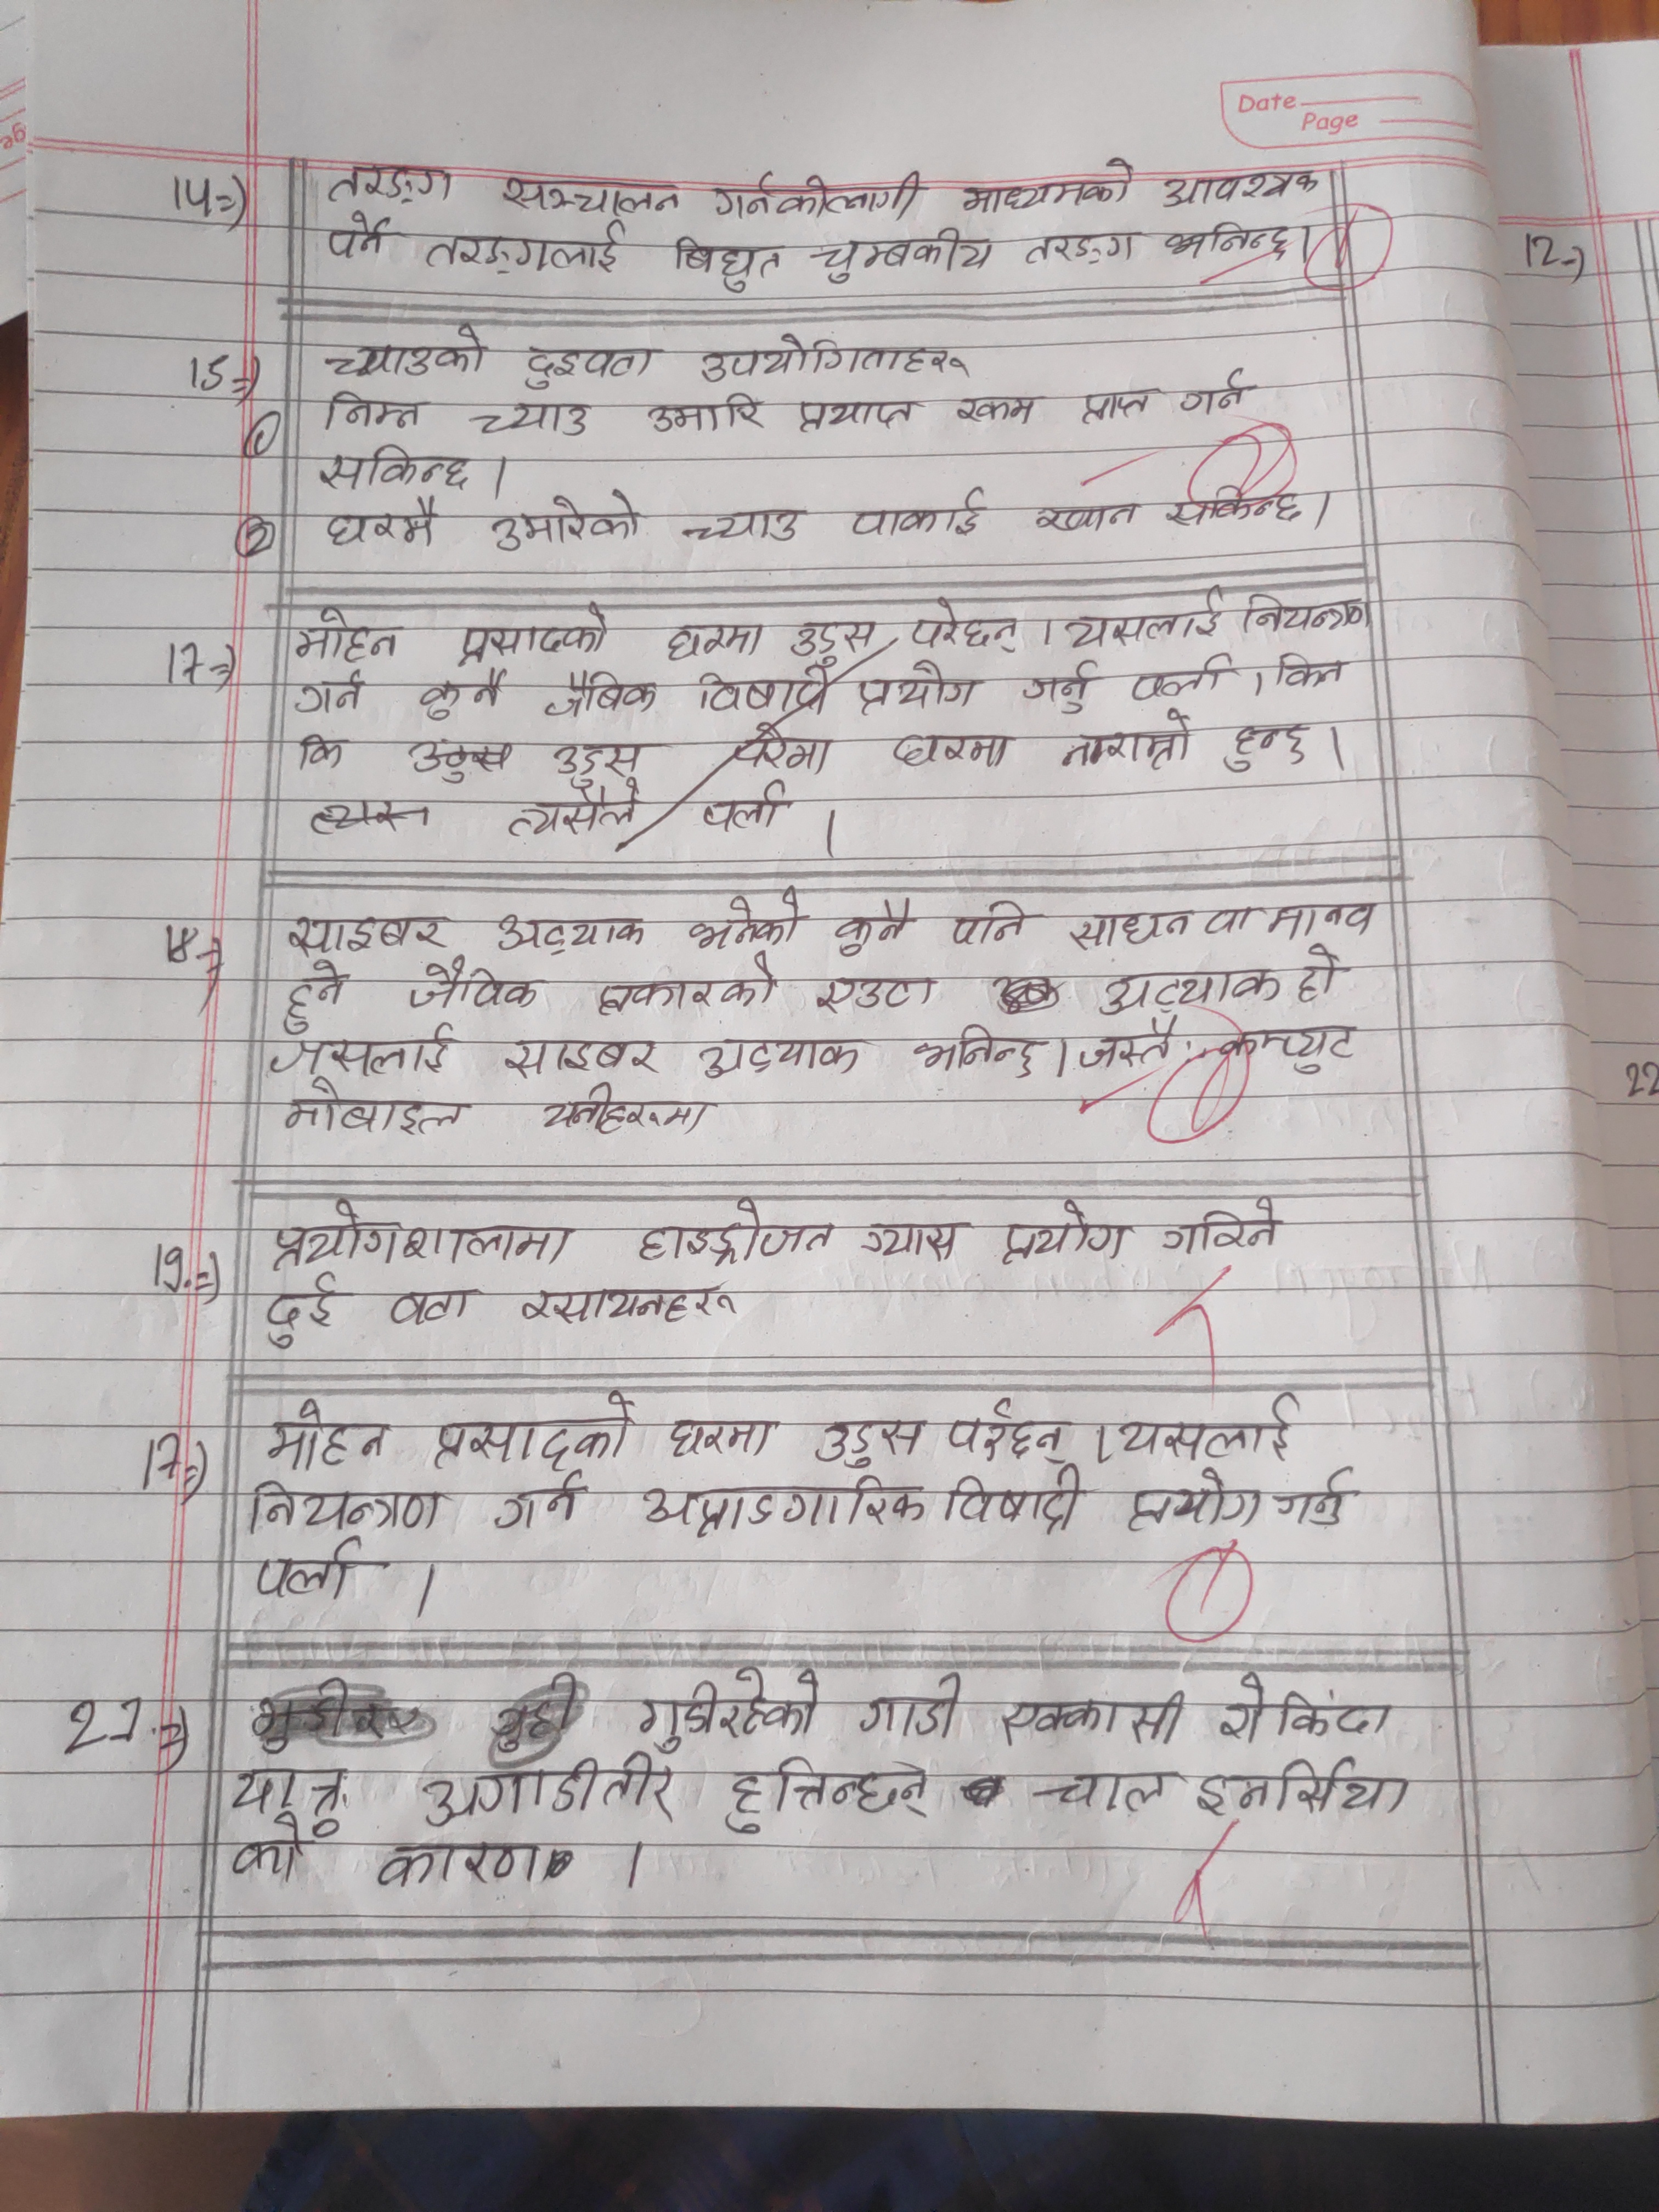 Date
Page
14=) तरङ्ग सञ्चालन गर्नकोलागी माध्यमको आवश्यक
पर्ने तरङ्गलाई बिधुत चुम्बकीय तरङ्ग भनिन्छ।
15=) च्याउको दुइवटा उपयोगिताहरू
① निम्न च्याउ उमारि प्रयाप्त रकम प्राप्त गर्न
सकिन्छ।
② घरमै उमारेको च्याउ पाकाई खान सकिन्छ।
17=) मोहन प्रसादको घरमा उडुस परेछन्। यसलाई नियन्त्रण
गर्न कुनै जैबिक विषादी प्रयोग गर्नु पर्ला। किन
कि उडुस परेमा घरमा नराम्रो हुन्छ।
त्यसैले पर्ला।
18=) साइबर अट्याक भनेको कुनै पनि साधन वा मानव
हुने जैविक प्रकारको एउटा अट्याक हो
जसलाई साइबर अट्याक भनिन्छ। जस्तै: कम्प्युट
मोबाइल यनीहरूमा
19.=) प्रयोगशालामा हाइड्रोजन ग्यास प्रयोग गरिने
दुई वटा रसायनहरू
17=) मोहन प्रसादको घरमा उडुस परेछन्। यसलाई
नियन्त्रण गर्न अप्राङगारिक विषादी प्रयोग गर्नु
पर्ला।
21.=) गुडीरहेको गाडी एक्कासी रोकिंदा
यात्रु अगाडीतीर हुत्तिन्छन् चाल इनर्सिया
को कारण।
12=)
22